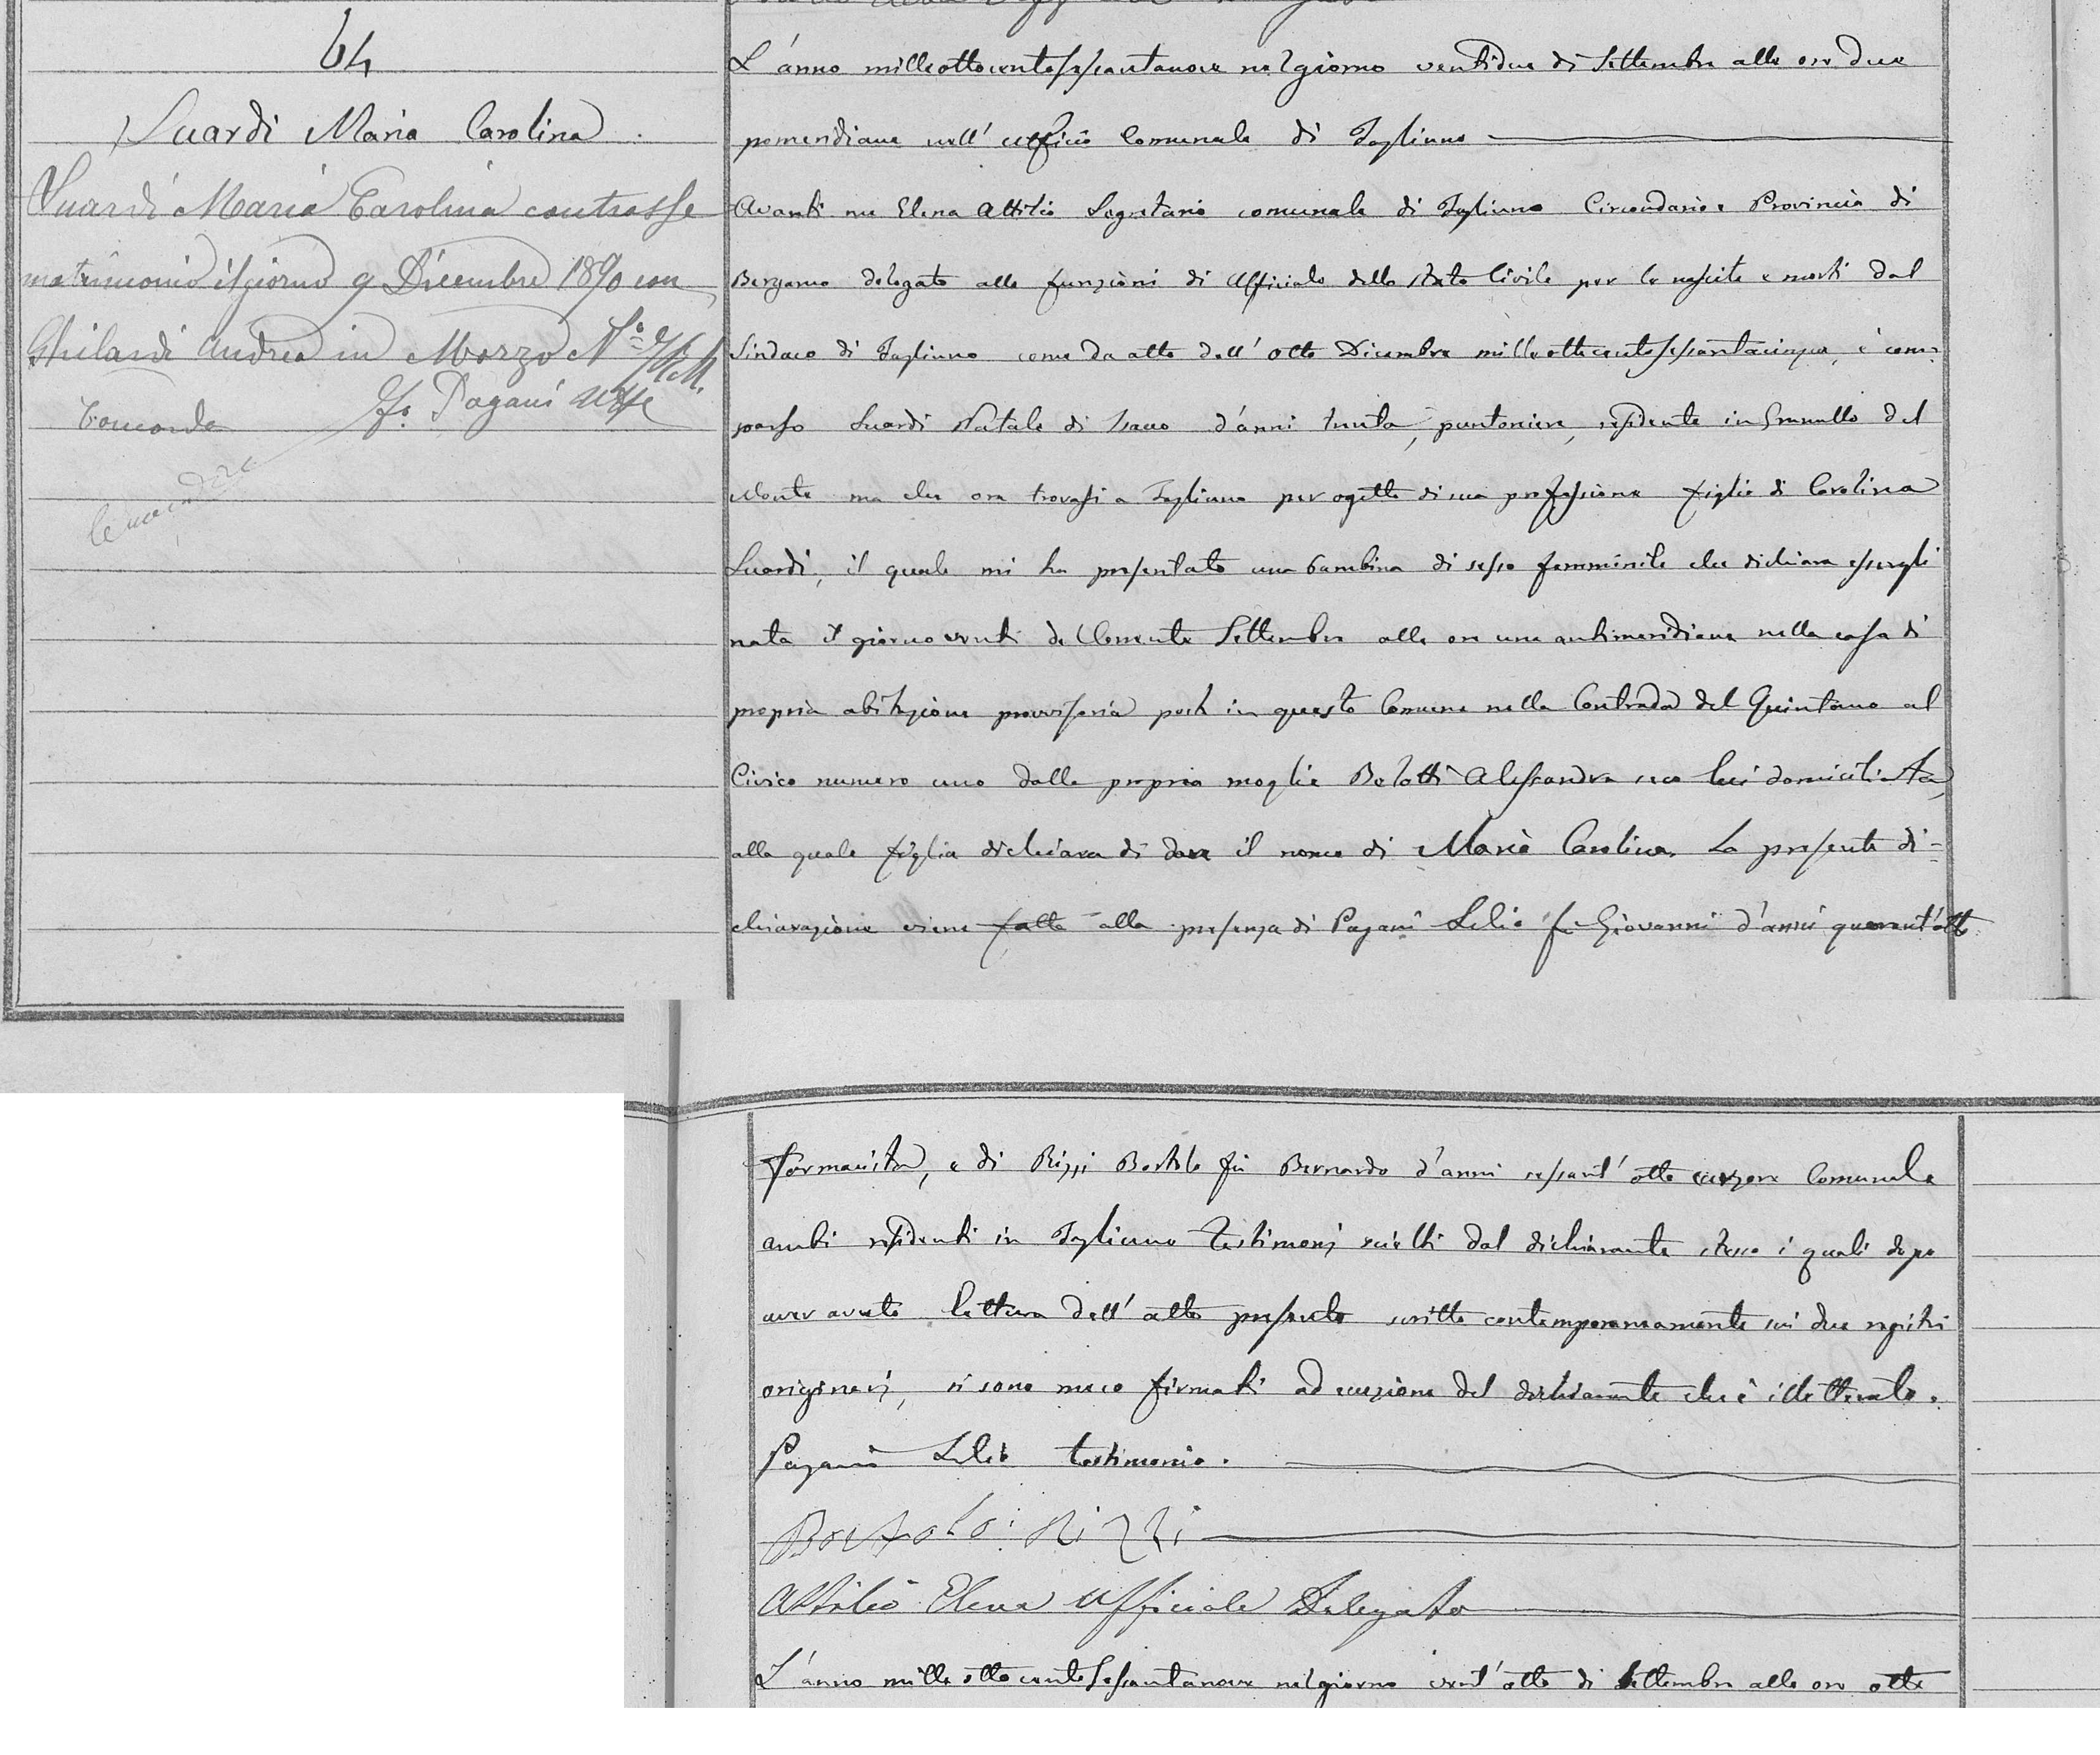 64
Suardi Maria Carolina
Suardi Maria Carolina contrasse
matrimonio il giorno 9 Dicembre 1890 con
Ghilardi Andrea in Mozzo N.°
f.° Pagani
Concorda
L'anno milleottocentosessantanove nel giorno ventidue di Settembre alle ore due
pomeridiane nell' ufficio Comunale di Tagliuno
Avanti me Elena Attilio Segretario comunale di Tagliuno Circondario e Provincia di
Bergamo delegato alle funzioni di Ufficiale dello stato Civile per le nascite e morti dal
Sindaco di Tagliuno come da atto dell' otto Dicembre milleottocentosessantacinque, è com-
parso Suardi Natale di Isacco d'anni trenta, puntoniere, residente in Grumello del
Monte ma che ora trovasi a Tagliuno per ogetto di sua professione figlio di Carolina
Suardi, il quale mi ha presentato una bambina di sesso femminile che dichiara essergli
nata il giorno venti del corrente Settembre alle ore una antimeridiane nella casa di
propria abitazione provvisoria posta in questo Comune nella Contrada del Quintano al
Civico numero uno dalla propria moglie Belotti Alessandra seco lui domiciliata,
alla quale figlia dichiara di dare il nome di Maria Carolina. La presente di-
chiarazione viene fatta alla presenza di Pagani Lelio fu Giovanni d'anni quarant'otto
farmacista, e di Rizzi Bortolo fu Bernardo d'anni sessant' otto cursore Comunale
ambi residenti in Tagliuno testimonj scielti dal dichiarante stesso i quali dopo
aver avuto lettura dell' atto presente scritto contemporaneamente sui due registri
originarj, si sono meco firmati ad eccezione del dichiarante che è illetterato.
Pagani Lelio testimonio.
Bortolo Rizzi
Attilio Elena Ufficiale Delegato
L'anno mille ottocento sessantanove nel giorno vent' otto di Settembre alle ore otto